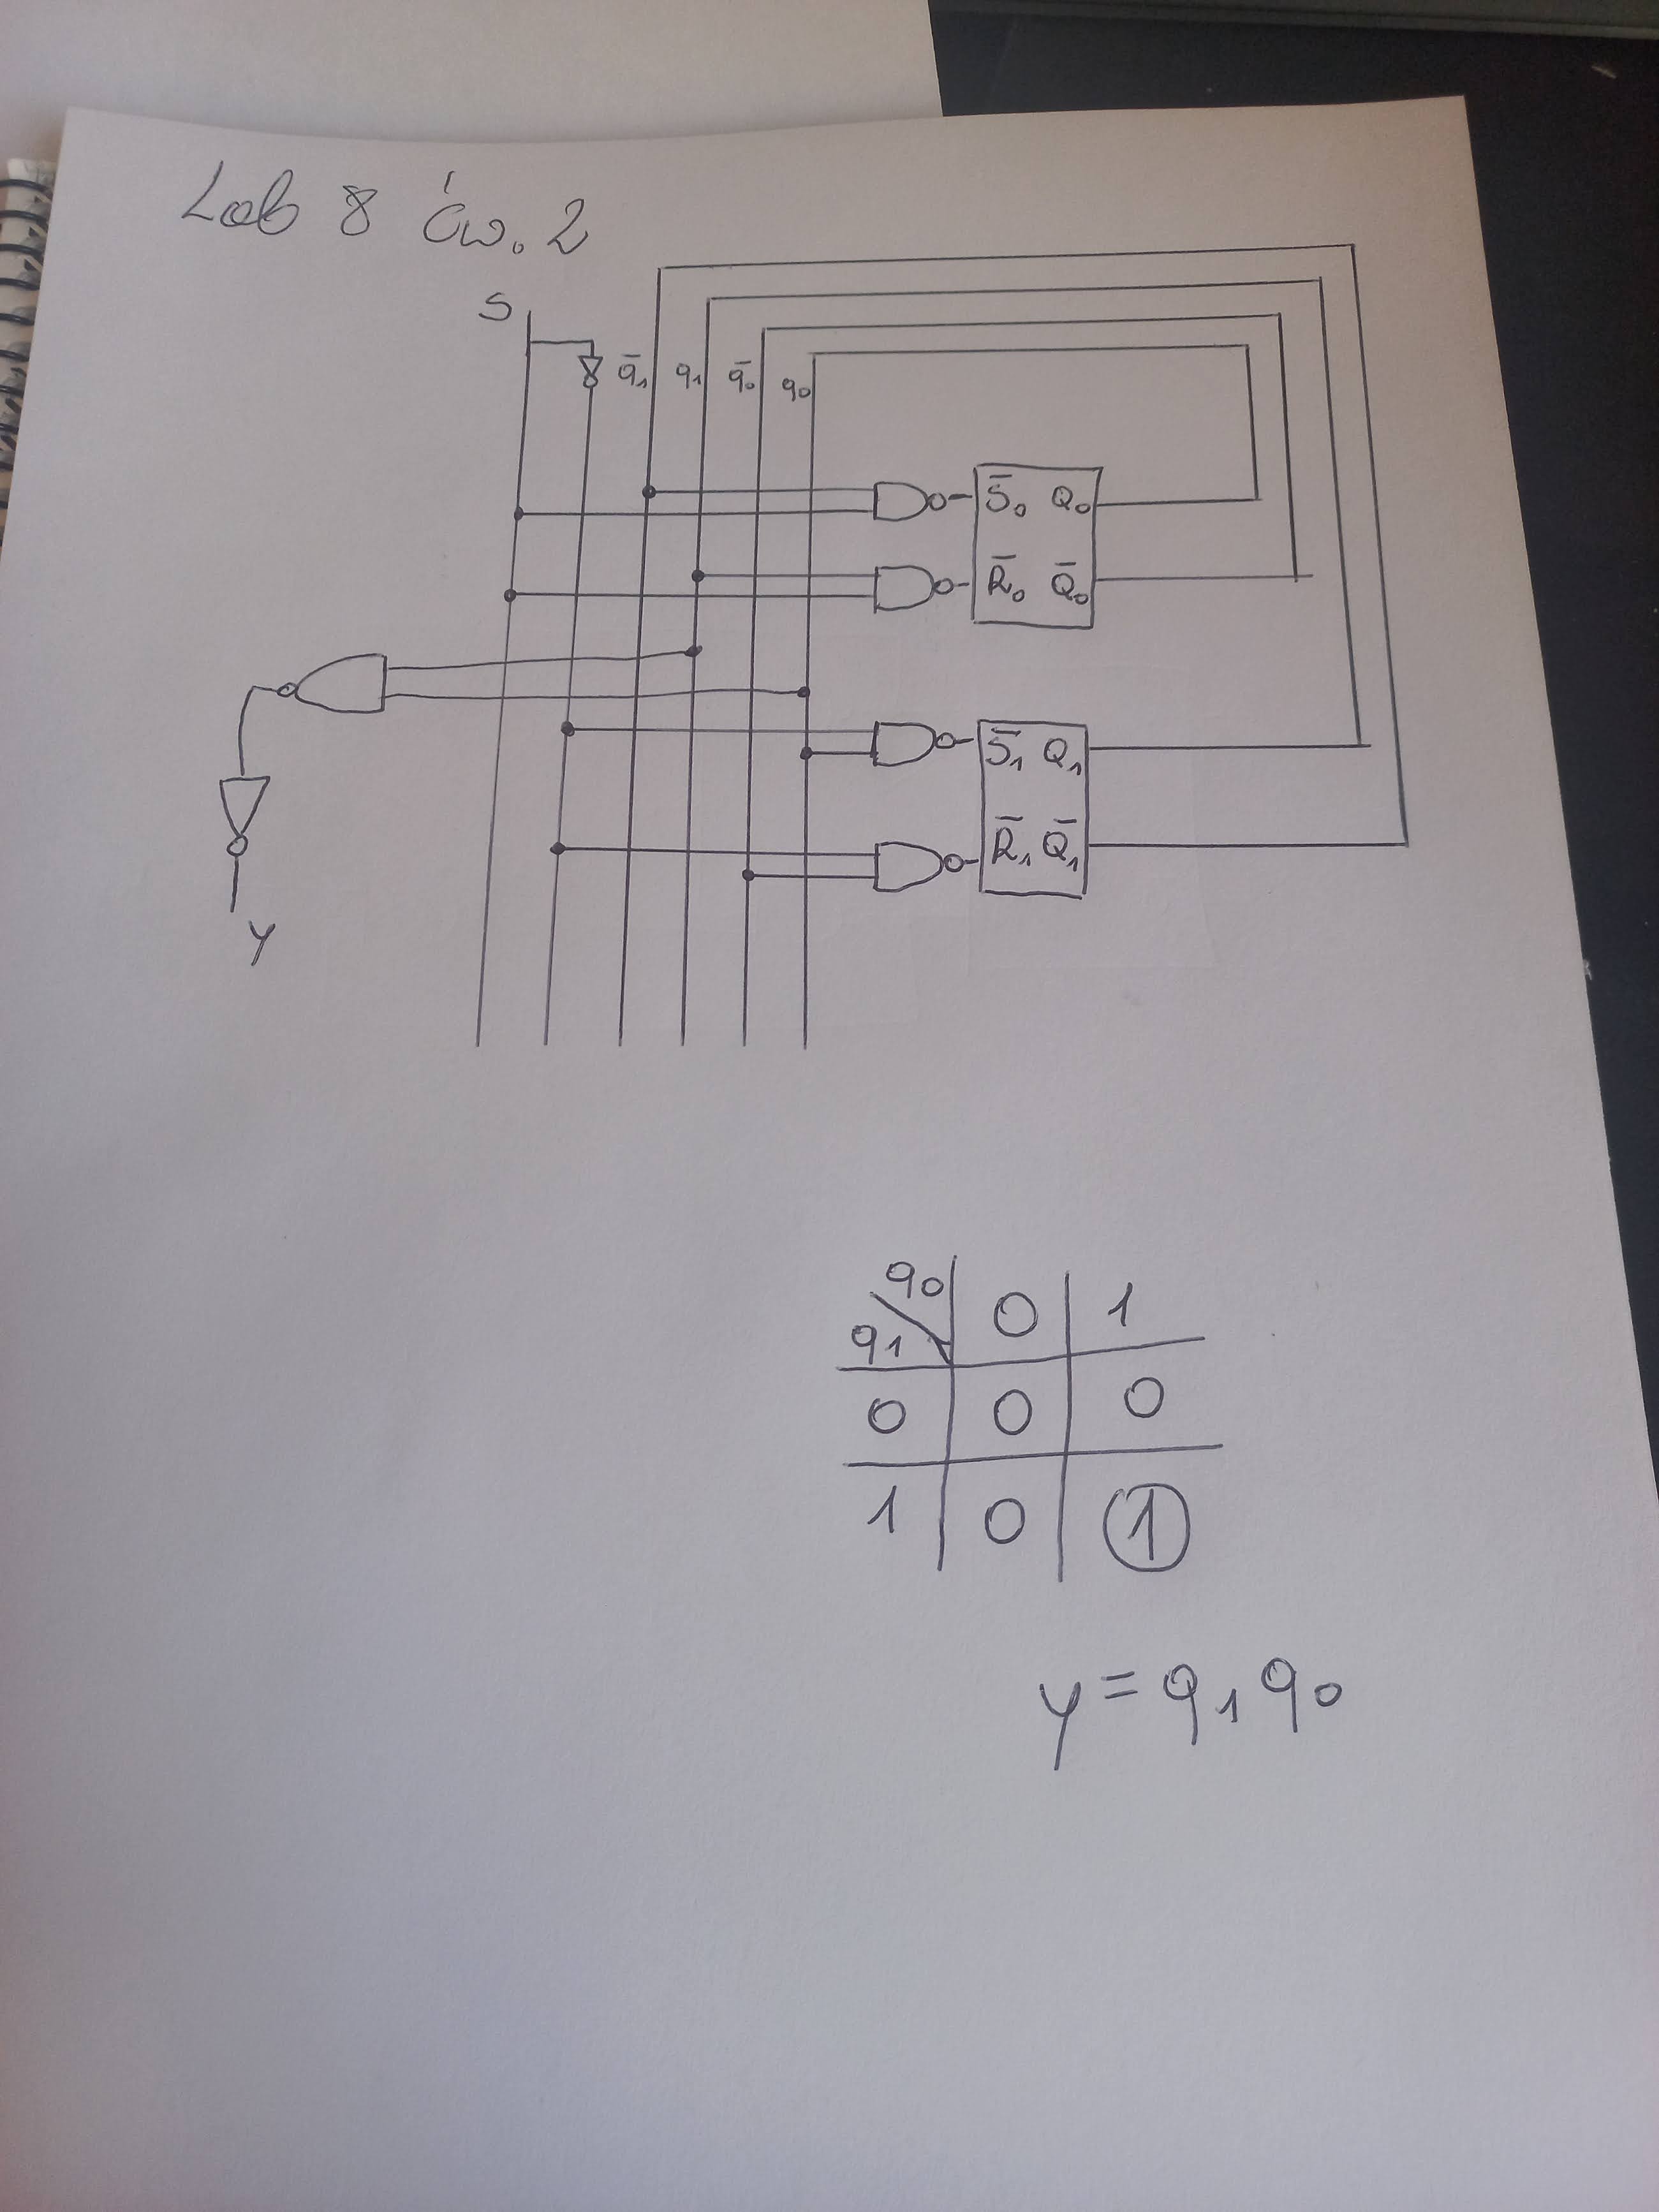 Lab 8 ćw. 2
S
q̄₁ q₁ q̄₀ q₀
S̄₀ Q₀
R̄₀ Q̄₀
S̄₁ Q₁
R̄₁ Q̄₁
y
q₀ 0 1
q₁
0 0 0
1 0 1
y = q₁ q₀